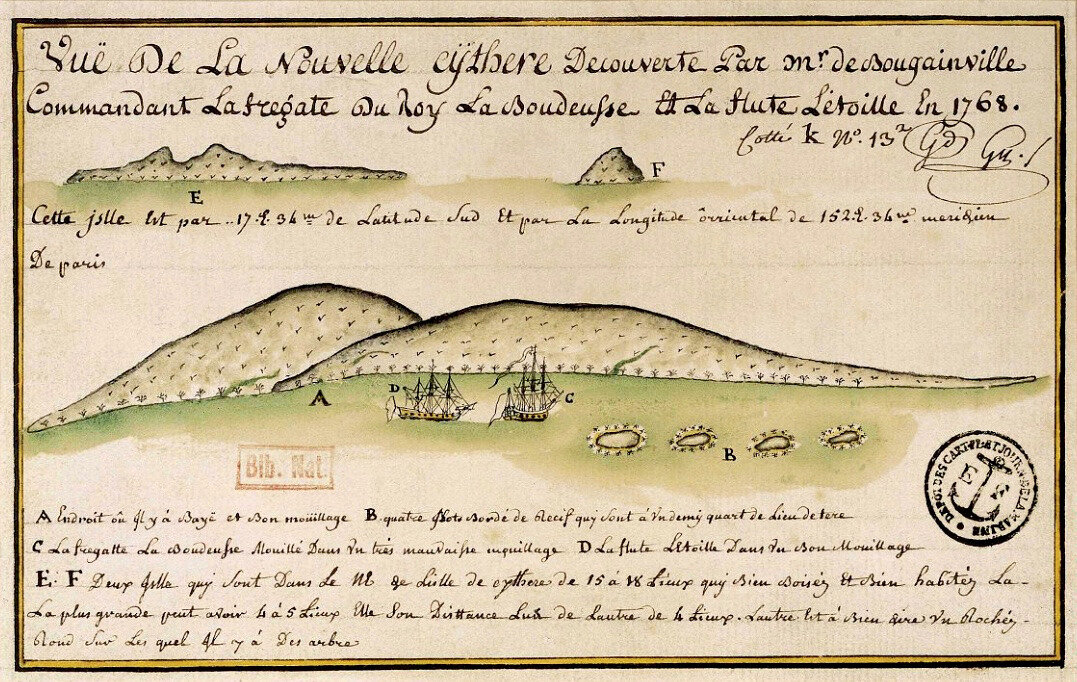 Vuë De La Nouvelle cÿthere Decouverte Par mr. de Bougainville
Commandant La fregate Du Roy La Boudeusse Et La flute L'etoille En 1768.
Cotté k No. 13
E
F
Cette jslle Est par 17. 34 de Latitude Sud Et par La Longitude orriental de 152. 34 meridien
De paris
D
A
C
B
Bib. Nat.
A Endroit où Il y á Bayë et Bon moüillage B quatre Ilots Bordé de Recif qui sont á Un demy quart de Lieu de tere
C La fregatte La Boudeusse Mouillé Dans Un trés mauvaisse mouillage D La flute L'Etoille Dans Un Bon Mouillage
E. F Deux Islle qui sont Dans Le de Lislle de cythere de 15 á 18 Lieux qui Bien Boiséz Et Bien habitéz La
La plus grande peut avoir 4 á 5 Lieux Elle Son Disttance Lun de Lautre de 4 Lieux. Lautre Est á Bien dire Un Rochéz
Rond Sur Les quel Il y á Des arbre